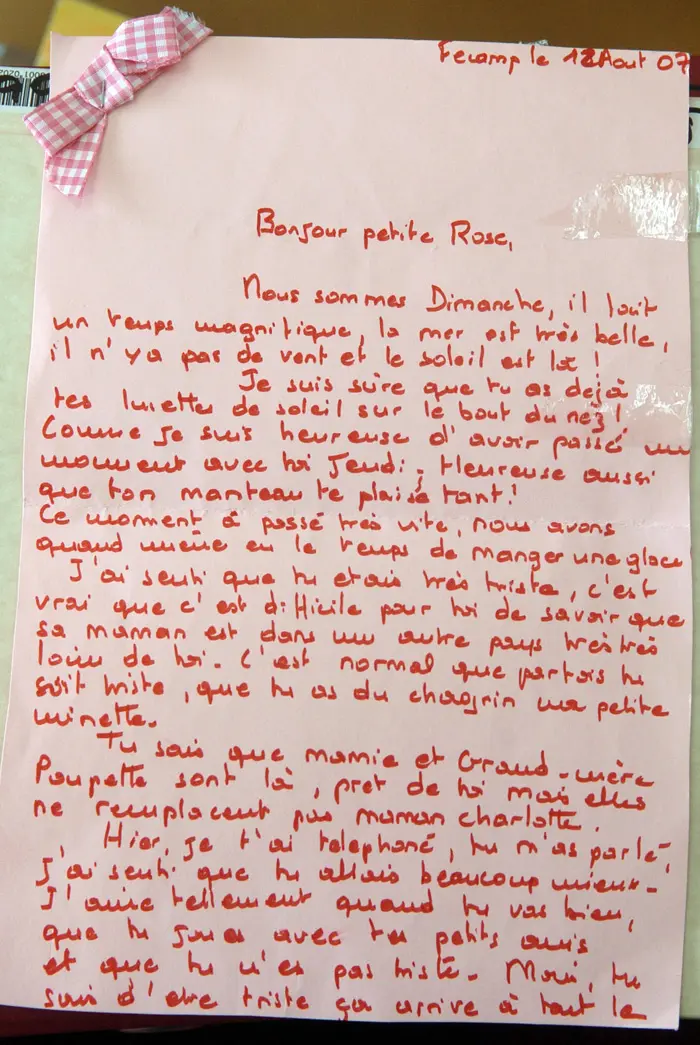 Fecamp le 12 Aout 07
Bonjour petite Rose,
Nous sommes Dimanche, il fait
un temps magnifique, la mer est très belle,
il n'y a pas de vent et le soleil est la !
Je suis sûre que tu as dejà
tes lunettes de soleil sur le bout du nez !
Comme je suis heureuse d'avoir passé un
moment avec toi Jeudi ; Heureuse aussi
que ton manteau te plaise tant !
Ce moment à passé très vite, nous avons
quand même eu le temps de manger une glace
J'ai senti que tu etais très triste, c'est
vrai que c'est difficile pour toi de savoir que
sa maman est dans un autre pays très très
loin de toi. C'est normal que parfois tu
soit triste, que tu as du chagrin ma petite
minette.
Tu sais que mamie et Grand-mère
Poupette sont là, pret de toi mais elles
ne remplacent pas maman charlotte.
Hier, je t'ai telephoné, tu m'as parlé,
J'ai senti que tu allais beaucoup mieux-
J'aime tellement quand tu vas bien,
que tu joues avec tes petits amis
et que tu n'es pas triste. Mais, tu
sais d'etre triste ça arrive à tout le